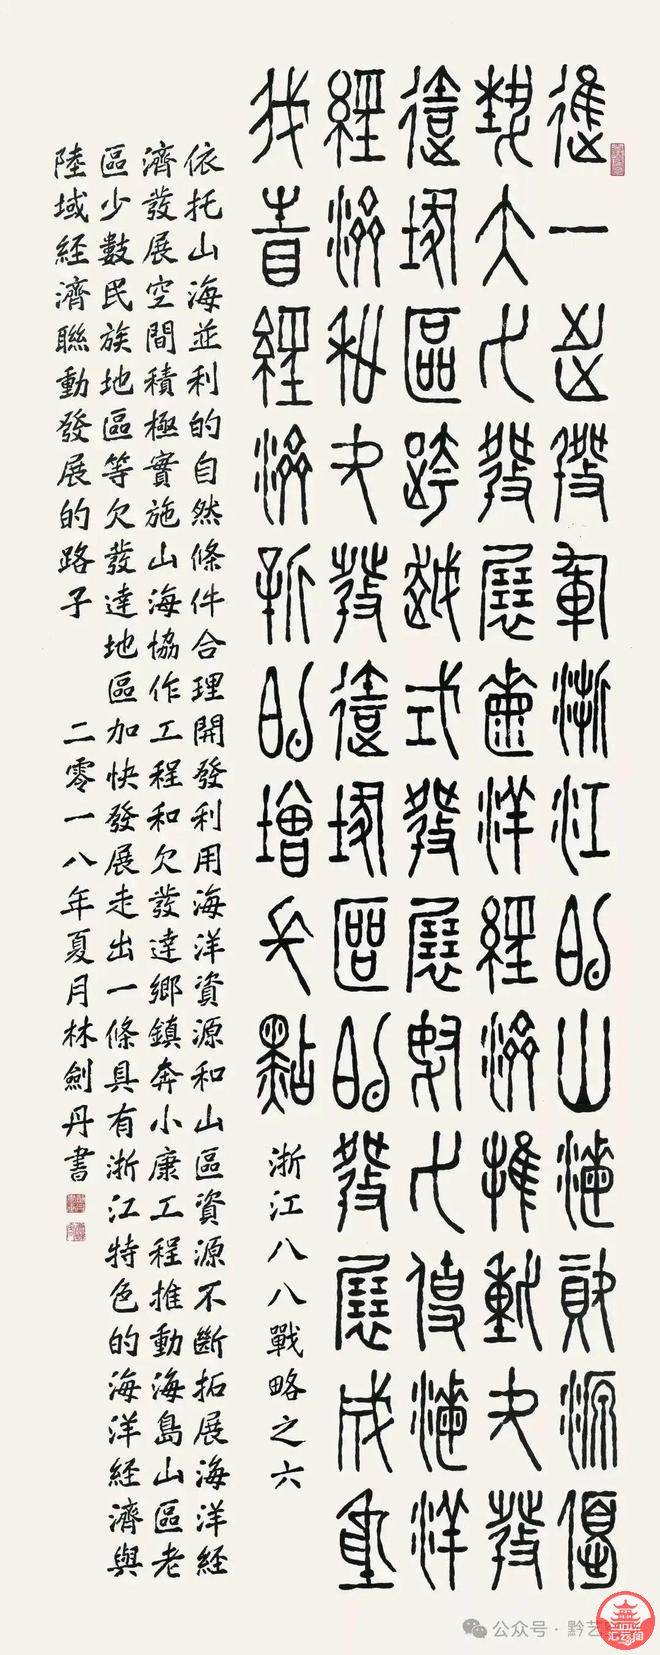 進一步發揮浙江的山海資源優
勢大力發展海洋經濟推動欠發
達地區跨越式發展努力使海洋
經濟和欠發達地區的發展成爲
我省經濟新的增長點 浙江八八戰略之六
依托山海並利的自然條件合理開發利用海洋資源和山區資源不斷拓展海洋經
濟發展空間積極實施山海協作工程和欠發達鄉鎮奔小康工程推動海島山區老
區少數民族地區等欠發達地區加快發展走出一條具有浙江特色的海洋經濟與
陸域經濟聯動發展的路子 二零一八年夏月林劍丹書
公众号·黔艺